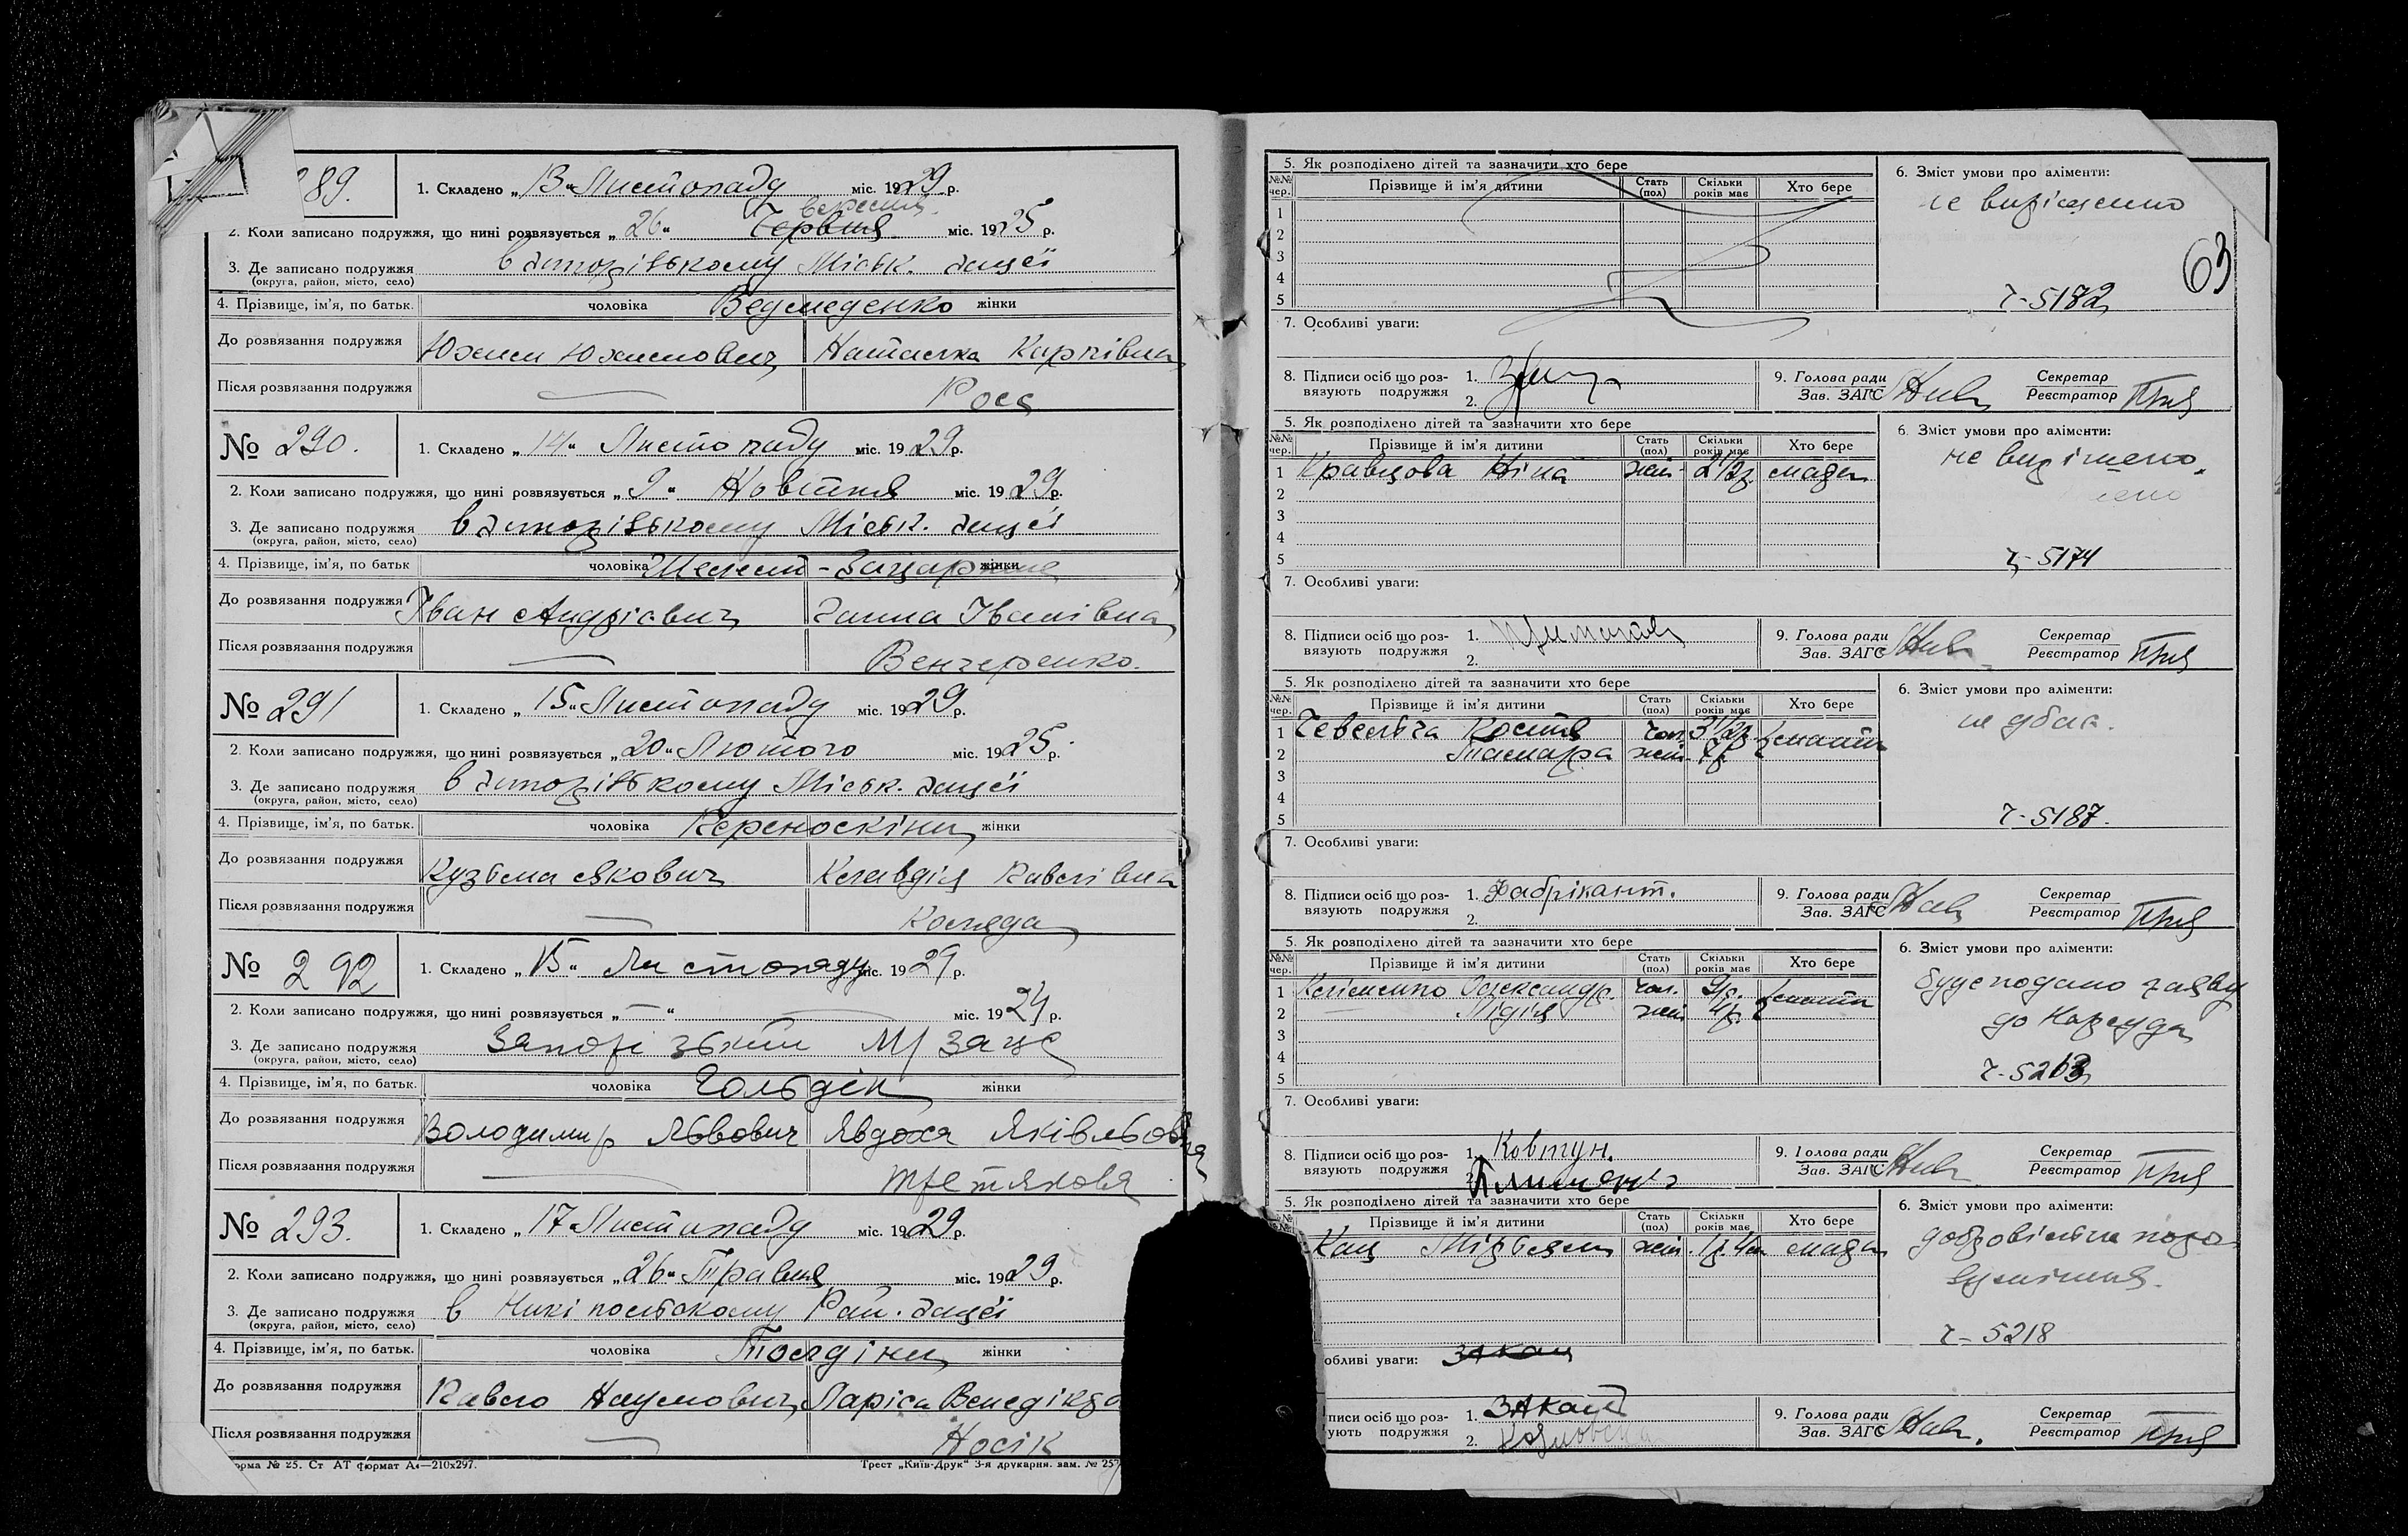 289.
1. Складено „13“ Листопаду міс. 1929 р.
вересня
2. Коли записано подружжя, що нині розвязується „26“ Червня міс. 1925 р.
3. Де записано подружжя в Запорізькому Міськ. Загсі
(округа, район, місто, село)
4. Прізвище, ім'я, по батьк. чоловіка Ведмеденко жінки
До розвязання подружжя Юхим Юхимович Наталка Карпівна
Після розвязання подружжя —
№ 290.
1. Складено „14“ Листопаду міс. 1929 р.
2. Коли записано подружжя, що нині розвязується „9“ Жовтня міс. 1929 р.
3. Де записано подружжя в Запорізькому Міськ. Загсі
(округа, район, місто, село)
4. Прізвище, ім'я, по батьк чоловіка жінки
До розвязання подружжя Іван Андрієвич Ганна Іванівна
Після розвязання подружжя — Венчеренко.
№ 291
1. Складено „15“ Листопаду міс. 1929 р.
2. Коли записано подружжя, що нині розвязується „20“ Лютого міс. 1925 р.
3. Де записано подружжя в Запорізькому Міськ. Загсі
(округа, район, місто, село)
4. Прізвище, ім'я, по батьк. чоловіка Переноскіни жінки
До розвязання подружжя Кузьма Якович Клавдія Павлівна
Після розвязання подружжя — Коляда
№ 292
1. Складено „15“ Листопаду міс. 1929 р.
2. Коли записано подружжя, що нині розвязується „—“ — міс. 1924 р.
3. Де записано подружжя М/ЗАГС
(округа, район, місто, село)
4. Прізвище, ім'я, по батьк. чоловіка Гольдін жінки
До розвязання подружжя Володимир Львович Явдоха Яківльовна
Після розвязання подружжя — Третякова
№ 293.
1. Складено „17“ Листопаду міс. 1929 р.
2. Коли записано подружжя, що нині розвязується „26“ Травня міс. 1929 р.
3. Де записано подружжя в Нікіпольскому Рай. Загсі
(округа, район, місто, село)
4. Прізвище, ім'я, по батьк. чоловіка жінки
До розвязання подружжя Павло Наумович Лариса
Після розвязання подружжя — Носік
орма № 25. Ст АТ формат А4—210х297. Трест „Київ-Друк“ 3-я друкарня. зам. № 257
63
5. Як розподілено дітей та зазначити хто бере
№№ чер. Прізвище й ім'я дитини Стать (пол) Скільки років має Хто бере
1
2
3
4
5
6. Зміст умови про аліменти:
не вирішено
ч-5182
7. Особливі уваги:
8. Підписи осіб що роз-
вязують подружжя
1.
2.
9. Голова ради
Зав. ЗАГС
Секретар
Реєстратор
5. Як розподілено дітей та зазначити хто бере
№№ чер. Прізвище й ім'я дитини Стать (пол) Скільки років має Хто бере
1 Кравцова Ніна жін. 2 1/2 р. мати
2
3
4
5
6. Зміст умови про аліменти:
не вирішено.
ч-5174
7. Особливі уваги:
8. Підписи осіб що роз-
вязують подружжя
1.
2.
9. Голова ради
Зав. ЗАГС
Секретар
Реєстратор
5. Як розподілено дітей та зазначити хто бере
№№ чер. Прізвище й ім'я дитини Стать (пол) Скільки років має Хто бере
1 Костя чол. 3 1/2 р. мати
2 Тамара жін.
3
4
5
6. Зміст умови про аліменти:
ч-5187.
7. Особливі уваги:
8. Підписи осіб що роз-
вязують подружжя
1. Фабрікант.
2.
9. Голова ради
Зав. ЗАГС
Секретар
Реєстратор
5. Як розподілено дітей та зазначити хто бере
№№ чер. Прізвище й ім'я дитини Стать (пол) Скільки років має Хто бере
1 Олександр. чол. 9 р. мати
2 — Лідія жін. 4 р.
3
4
5
6. Зміст умови про аліменти:
буде подано заяву
до Нарсуда
ч-5263
7. Особливі уваги:
8. Підписи осіб що роз-
вязують подружжя
1. Ковтун.
2.
9. Голова ради
Зав. ЗАГС
Секретар
Реєстратор
5. Як розподілено дітей та зазначити хто бере
Прізвище й ім'я дитини Стать (пол) Скільки років має Хто бере
Кац жін. мати
6. Зміст умови про аліменти:
добровільне поро-
зуміння.
ч-5218
обливі уваги:
писи осіб що роз-
ують подружжя
1.
2.
9. Голова ради
Зав. ЗАГС
Секретар
Реєстратор